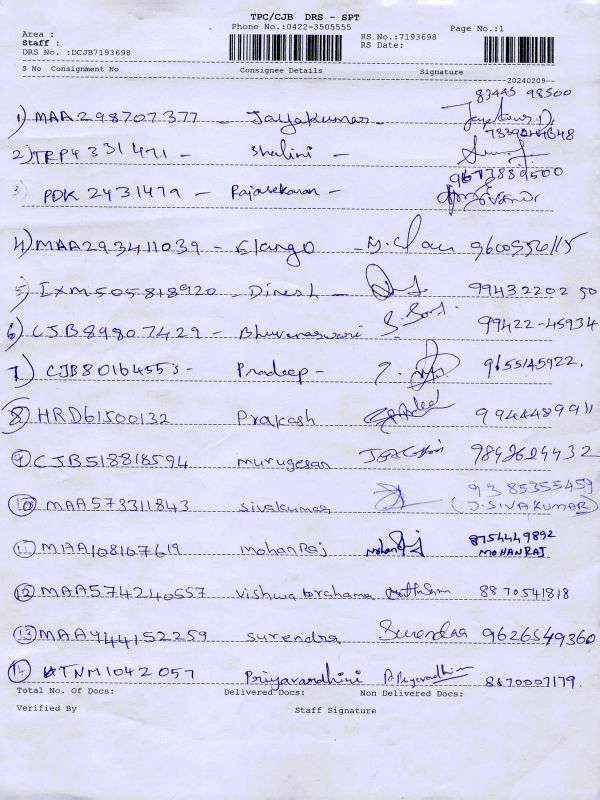 TPC/CJB DRS - SPT
Phone No.:0422-3505555
Page No.:1
Area :
Staff :
DRS No. :DCJB7193698
RS No.:7193698
RS Date:
S No Consignment No Consignee Details Signature
20240209
83445 98500
1) MAA298707377 - Jayakumar -
7339244648
2) TRP4331471 - Shalini -
9677889500
3) PDK 2431479 - Rajasekaran -
4) MAA293411039 - Elango - 9600556115
5) IXM505818920 - Dinesh - 99432202 50
6) CJB89807429 - Bhuvaneswari 99422-45934
7) CJB80164553 - Pradeep - 9655145922.
8) HRD61500132 Prakash 9944489911
9) CJB518818594 murugesan 9842624432
10) MAA573311843 sivakumar 9385355459
(J.SIVAKUMAR)
11) MAA108107619 mohanRaj 8754449892
MOHANRAJ
12) MAA574240557 vishwa brahama 8870541818
13) MAA944152259 surendra Surendra 9626549360
14) ATNM1042057 Priyavardhini 8870007179.
Total No. Of Docs: Delivered Docs: Non Delivered Docs:
Verified By Staff Signature